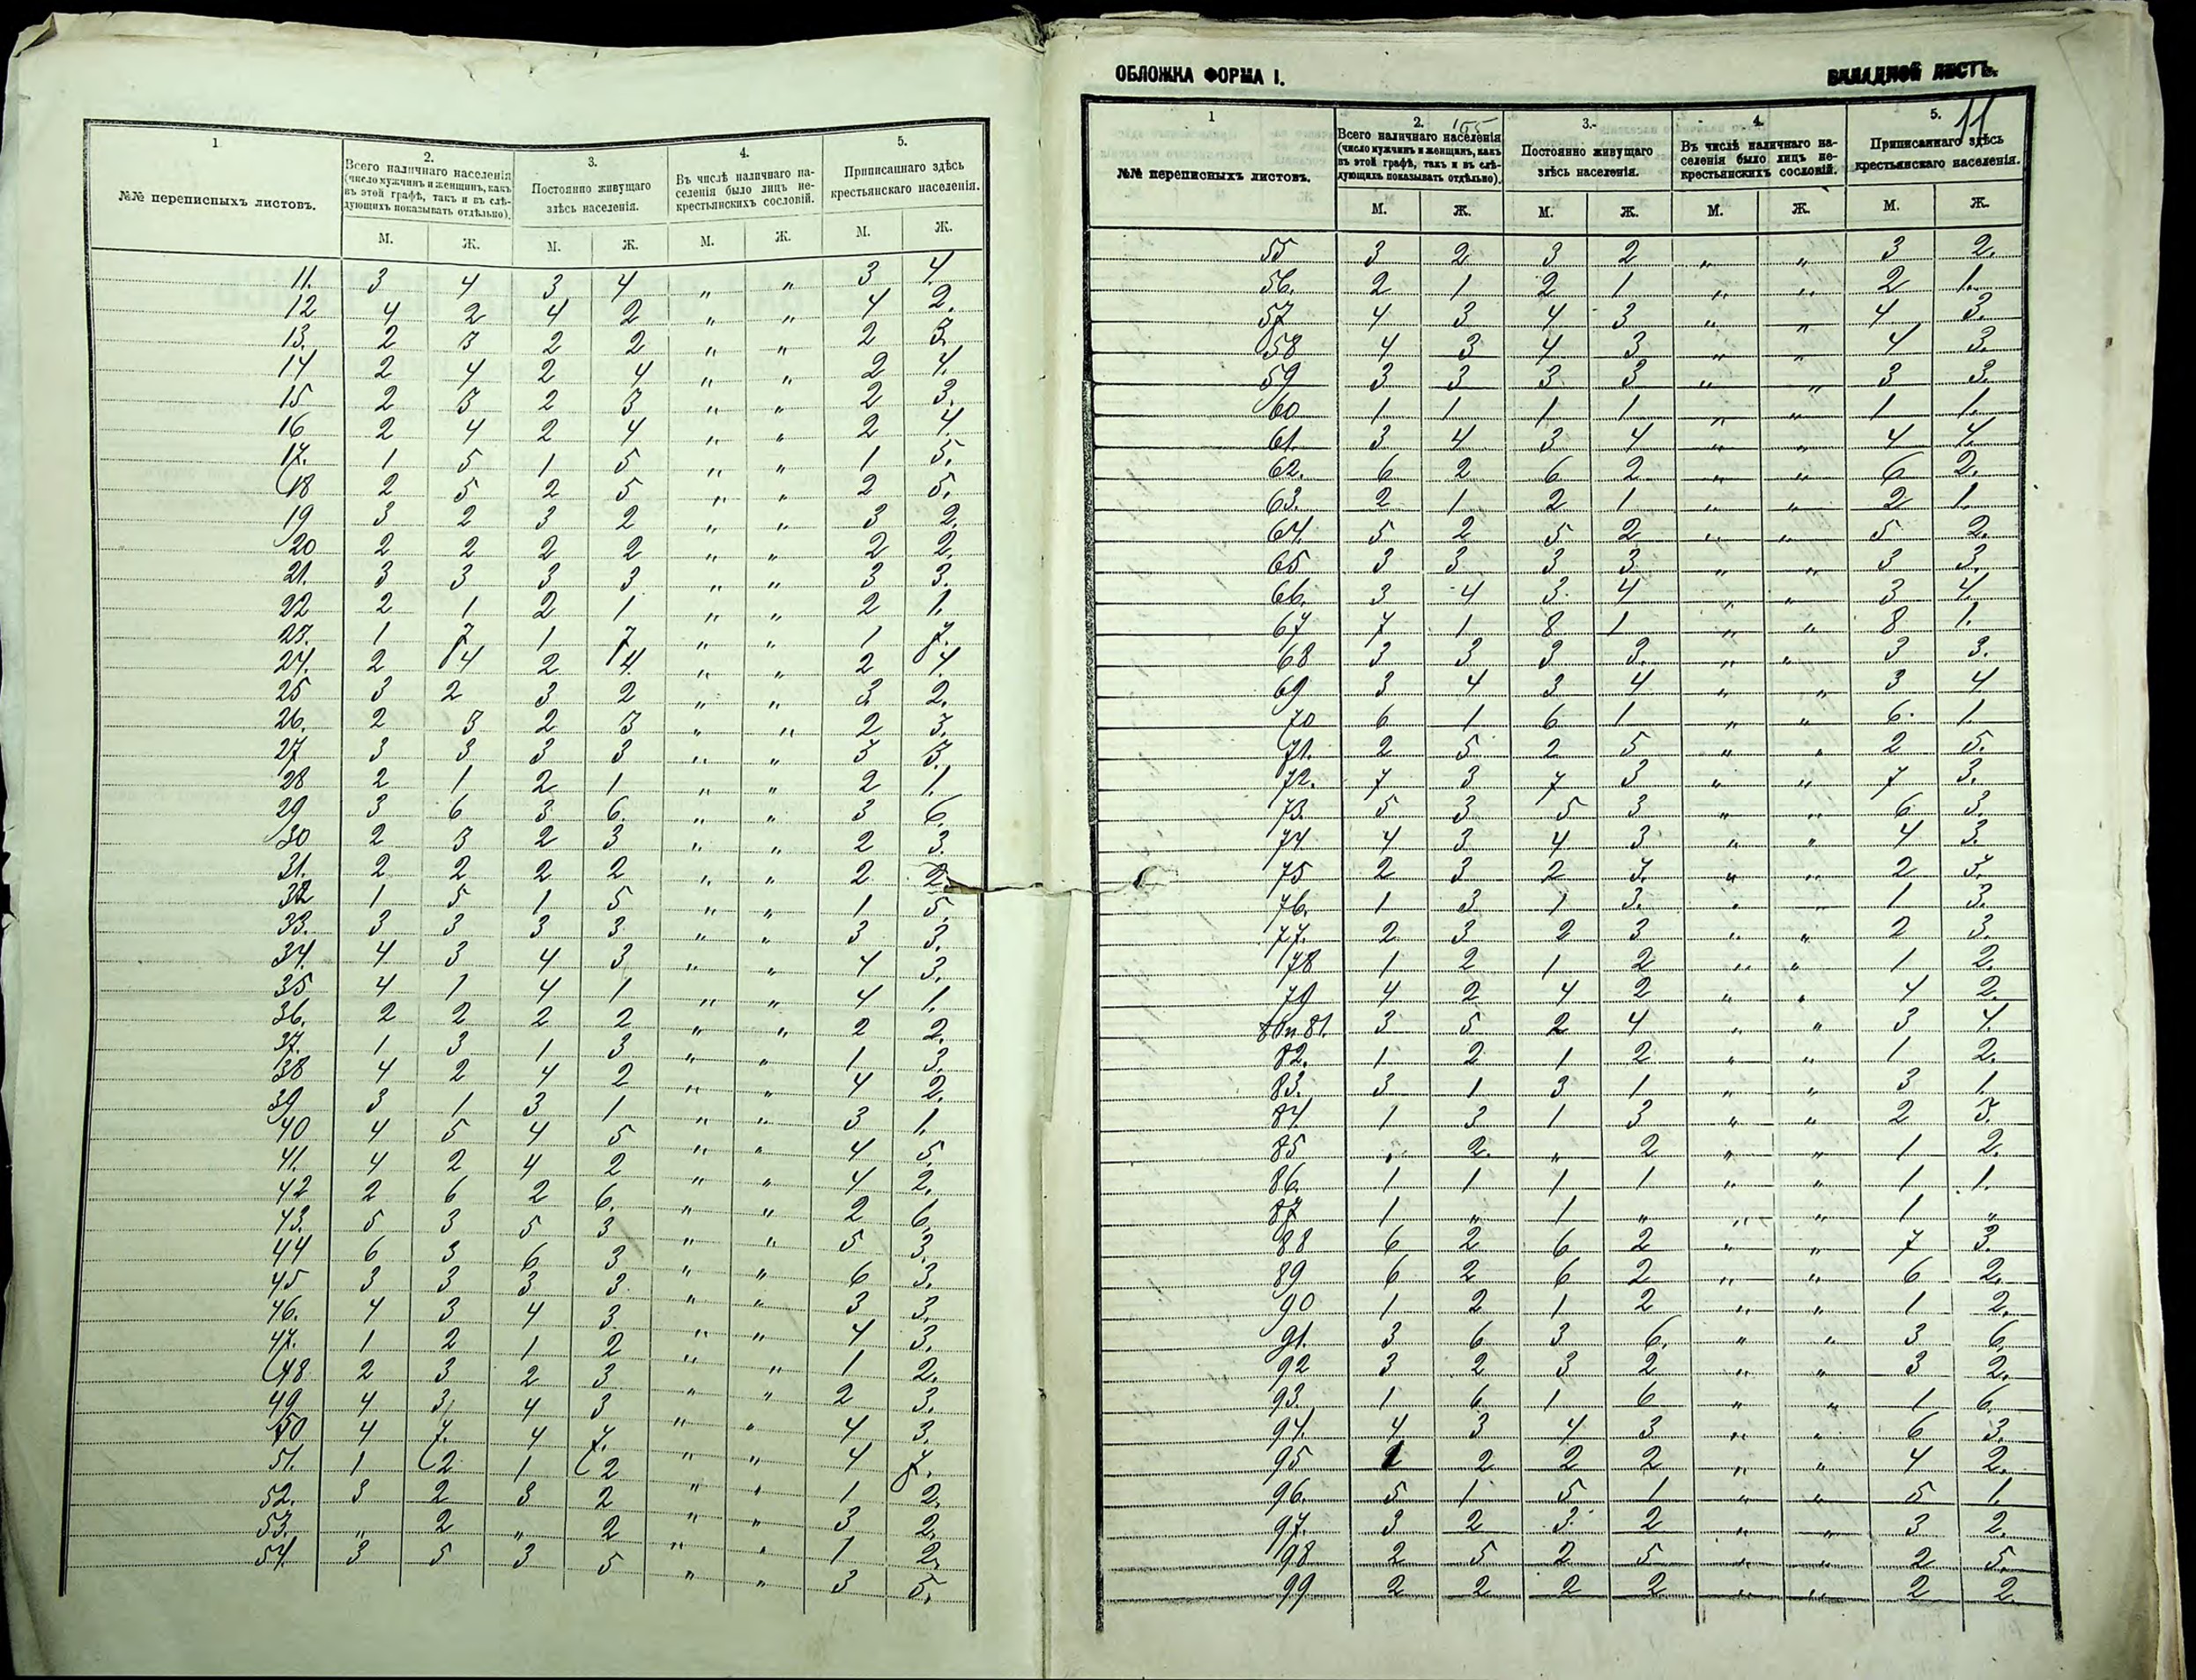 1
№№ переписныхъ листовъ.
2.
Всего наличнаго населенія
(число мужчинъ и женщинъ, какъ
въ этой графѣ, такъ и въ слѣ-
дующихъ показывать отдѣльно).
3.
Постоянно живущаго
здѣсь населенія.
4.
Въ числѣ наличнаго на-
селенія было лицъ не-
крестьянскихъ сословій.
5.
Приписаннаго здѣсь
крестьянскаго населенія.
М. Ж. М. Ж. М. Ж. М. Ж.
11. 3 4 3 4 „ „ 3 4.
12 4 2 4 2 „ „ 4 2.
13. 2 3 2 2 „ „ 2 3.
14 2 4 2 4 „ „ 2 4.
15 2 3 2 3 „ „ 2 3.
16 2 4 2 4 „ „ 2 4.
17. 1 5 1 5 „ „ 1 5.
18 2 5 2 5 „ „ 2 5.
19 3 2 3 2 „ „ 3 2.
20 2 2 2 2 „ „ 2 2.
21. 3 3 3 3 „ „ 3 3.
22 2 1 2 1 „ „ 2 1.
23. 1 7 1 7 „ „ 1 7.
24. 2 4 2 4. „ „ 2 4.
25 3 2 3 2 „ „ 3. 2.
26. 2 3 2 3 „ „ 2 3.
27 3 3 3 3 „ „ 3 3.
28 2 1 2 1 „ „ 2 1.
29 3 6 3 6. „ „ 3 6.
30 2 3 2 3 „ „ 2 3.
31. 2 2 2 2 „ „ 2 2.
32 1 5 1 5 „ „ 1 5.
33. 3 3 3 3 „ „ 3 3.
34. 4 3 4 3 „ „ 4 3.
35 4 1 4 1 „ „ 4 1.
36. 2 2 2 2 „ „ 2 2.
37. 1 3 1 3 „ „ 1 3.
38 4 2 4 2 „ „ 4 2.
39 3 1 3 1 „ „ 3 1.
40 4 5 4 5 „ „ 4 5.
41. 4 2 4 2 „ „ 4 2.
42 2 6 2 6. „ „ 2 6.
43. 5 3 5 3 „ „ 5 3.
44 6 3 6 3 „ „ 6 3.
45 3 3 3 3 „ „ 3 3.
46. 4 3 4 3 „ „ 4 3.
47. 1 2 1 2 „ „ 1 2.
48 2 3 2 3 „ „ 2 3.
49 4 3 4 3 „ „ 4 3.
50 4 7. 4 7. „ „ 4 7.
51. 1 2 1 2 „ „ 1 2.
52. 3 2 3 2 „ „ 3 2.
53. „ 2 „ 2 „ „ 1 2.
54. 3 5 3 5 „ „ 3 5.
ОБЛОЖКА ФОРМА I.
ВКЛАДНОЙ ЛИСТЪ.
11
1
№№ переписныхъ листовъ.
2.
Всего наличнаго населенія
(число мужчинъ и женщинъ, какъ
въ этой графѣ, такъ и въ слѣ-
дующихъ показывать отдѣльно).
3.
Постоянно живущаго
здѣсь населенія.
4.
Въ числѣ наличнаго на-
селенія было лицъ не-
крестьянскихъ сословій.
5.
Приписаннаго здѣсь
крестьянскаго населенія.
М. Ж. М. Ж. М. Ж. М. Ж.
55 3 2 3 2 „ „ 3 2.
56. 2 1 2 1 „ „ 2 1.
57 4 3 4 3 „ „ 4 3.
58 4 3 4 3 „ „ 4 3.
59 3 3 3 3 „ „ 3 3.
60 1 1 1 1 „ „ 1 1.
61. 3 4 3 4 „ „ 4 4.
62. 6 2 6 2 „ „ 6 2.
63. 2 1 2 1 „ „ 2 1.
64. 5 2 5 2 „ „ 5 2.
65 3 3 3 3 „ „ 3 3.
66. 3 4 3 4 „ „ 3 4.
67 7 1 8 1 „ „ 8 1.
68 3 3 3 3. „ „ 3 3.
69 3 4 3 4 „ „ 3 4.
70 6 1 6 1 „ „ 6. 1.
71. 2 5 2 5 „ „ 2 5.
72. 7 3 7 3 „ „ 7 3.
73. 5 3 5 3 „ „ 6 3.
74 4 3 4 3 „ „ 4 3.
75 2 3 2 3. „ „ 2 3.
76. 1 3 1 3. „ „ 1 3.
77. 2 3 2 3 „ „ 2 3.
78 1 2 1 2 „ „ 1 2.
79 4 2 4 2 „ „ 4 2.
80и81. 3 5 2 4 „ „ 3 4.
82. 1 2 1 2 „ „ 1 2.
83. 3 1 3 1 „ „ 3 1.
84 1 3 1 3 „ „ 2 3.
85 „ 2. „ 2 „ „ 1 2.
86. 1 1 1 1 „ „ 1 1.
87 1 „ 1 „ „ „ 1 „
88 6 2 6 2 „ „ 7 3.
89 6 2 6 2 „ „ 6 2.
90 1 2 1 2 „ „ 1 2.
91. 3 6 3 6. „ „ 3 6.
92 3 2 3 2 „ „ 3 2.
93. 1 6 1 6 „ „ 1 6.
94. 4 3 4 3 „ „ 6 3.
95 2 2 2 „ „ 4 2.
96. 5 1 5 1 „ „ 5 1.
97. 3 2 3 2 „ „ 3 2.
98 2 5 2 5 „ „ 2 5.
99 2 2 2 2 „ „ 2 2.